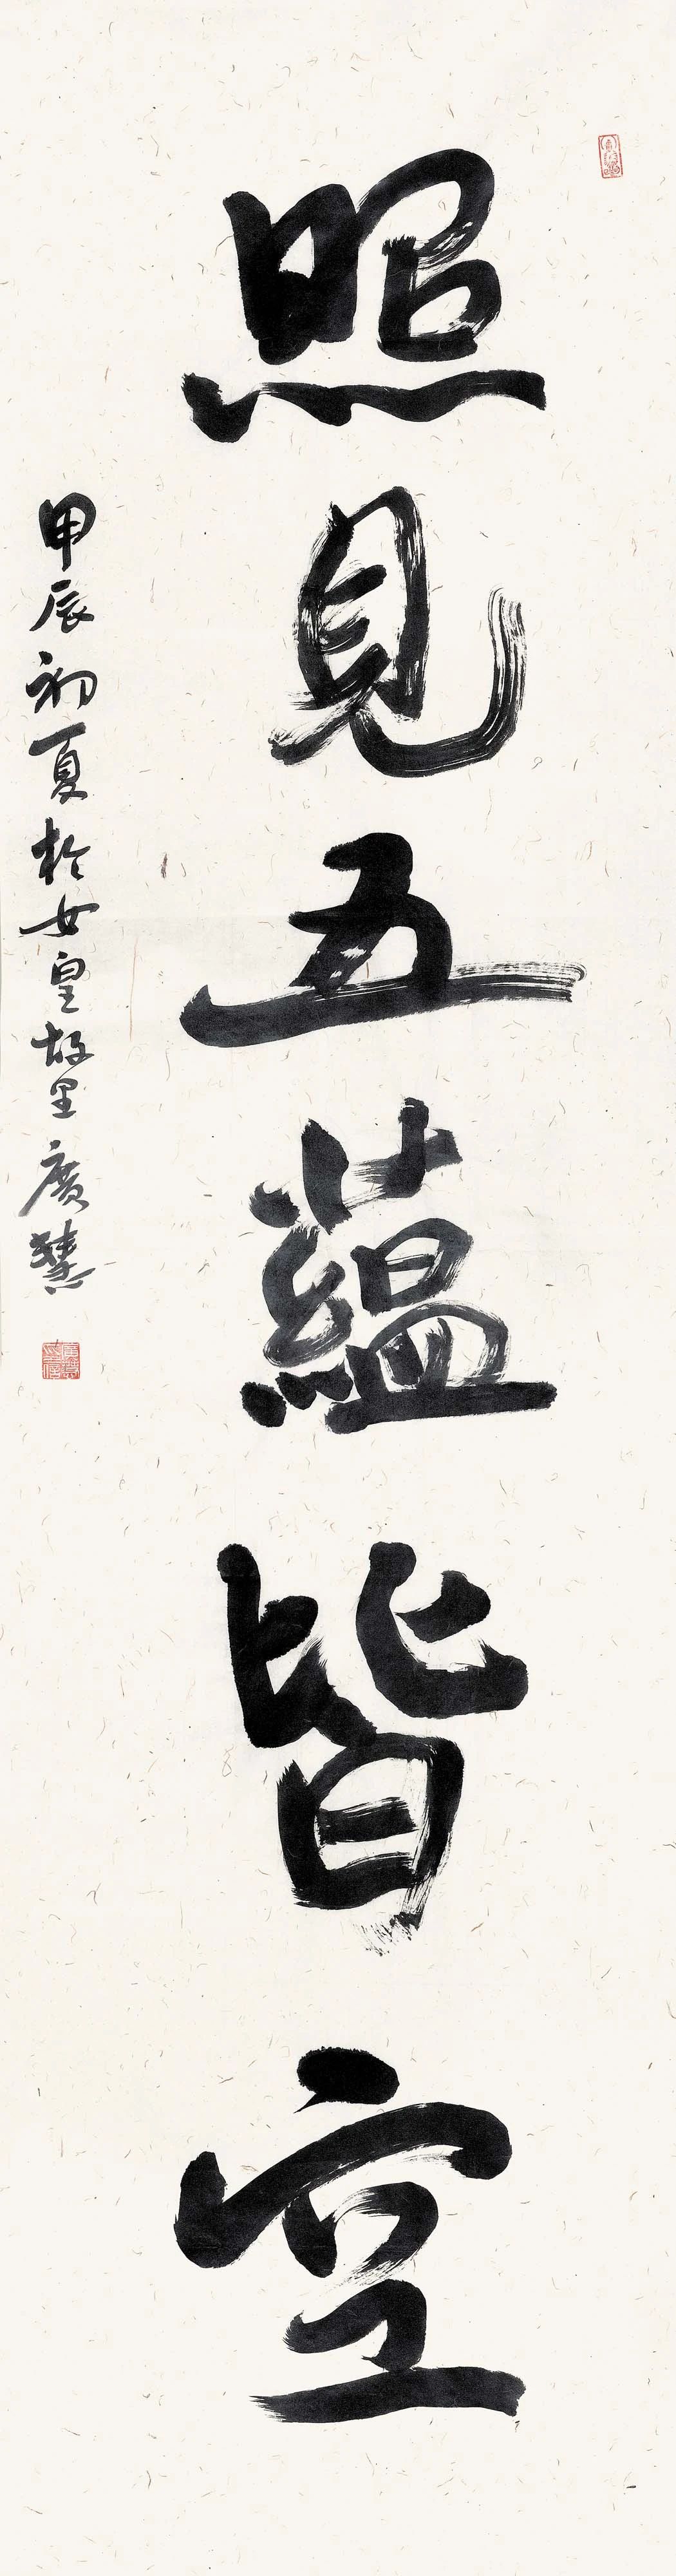 照見五蘊皆空
甲辰初夏於女皇故里廣慧